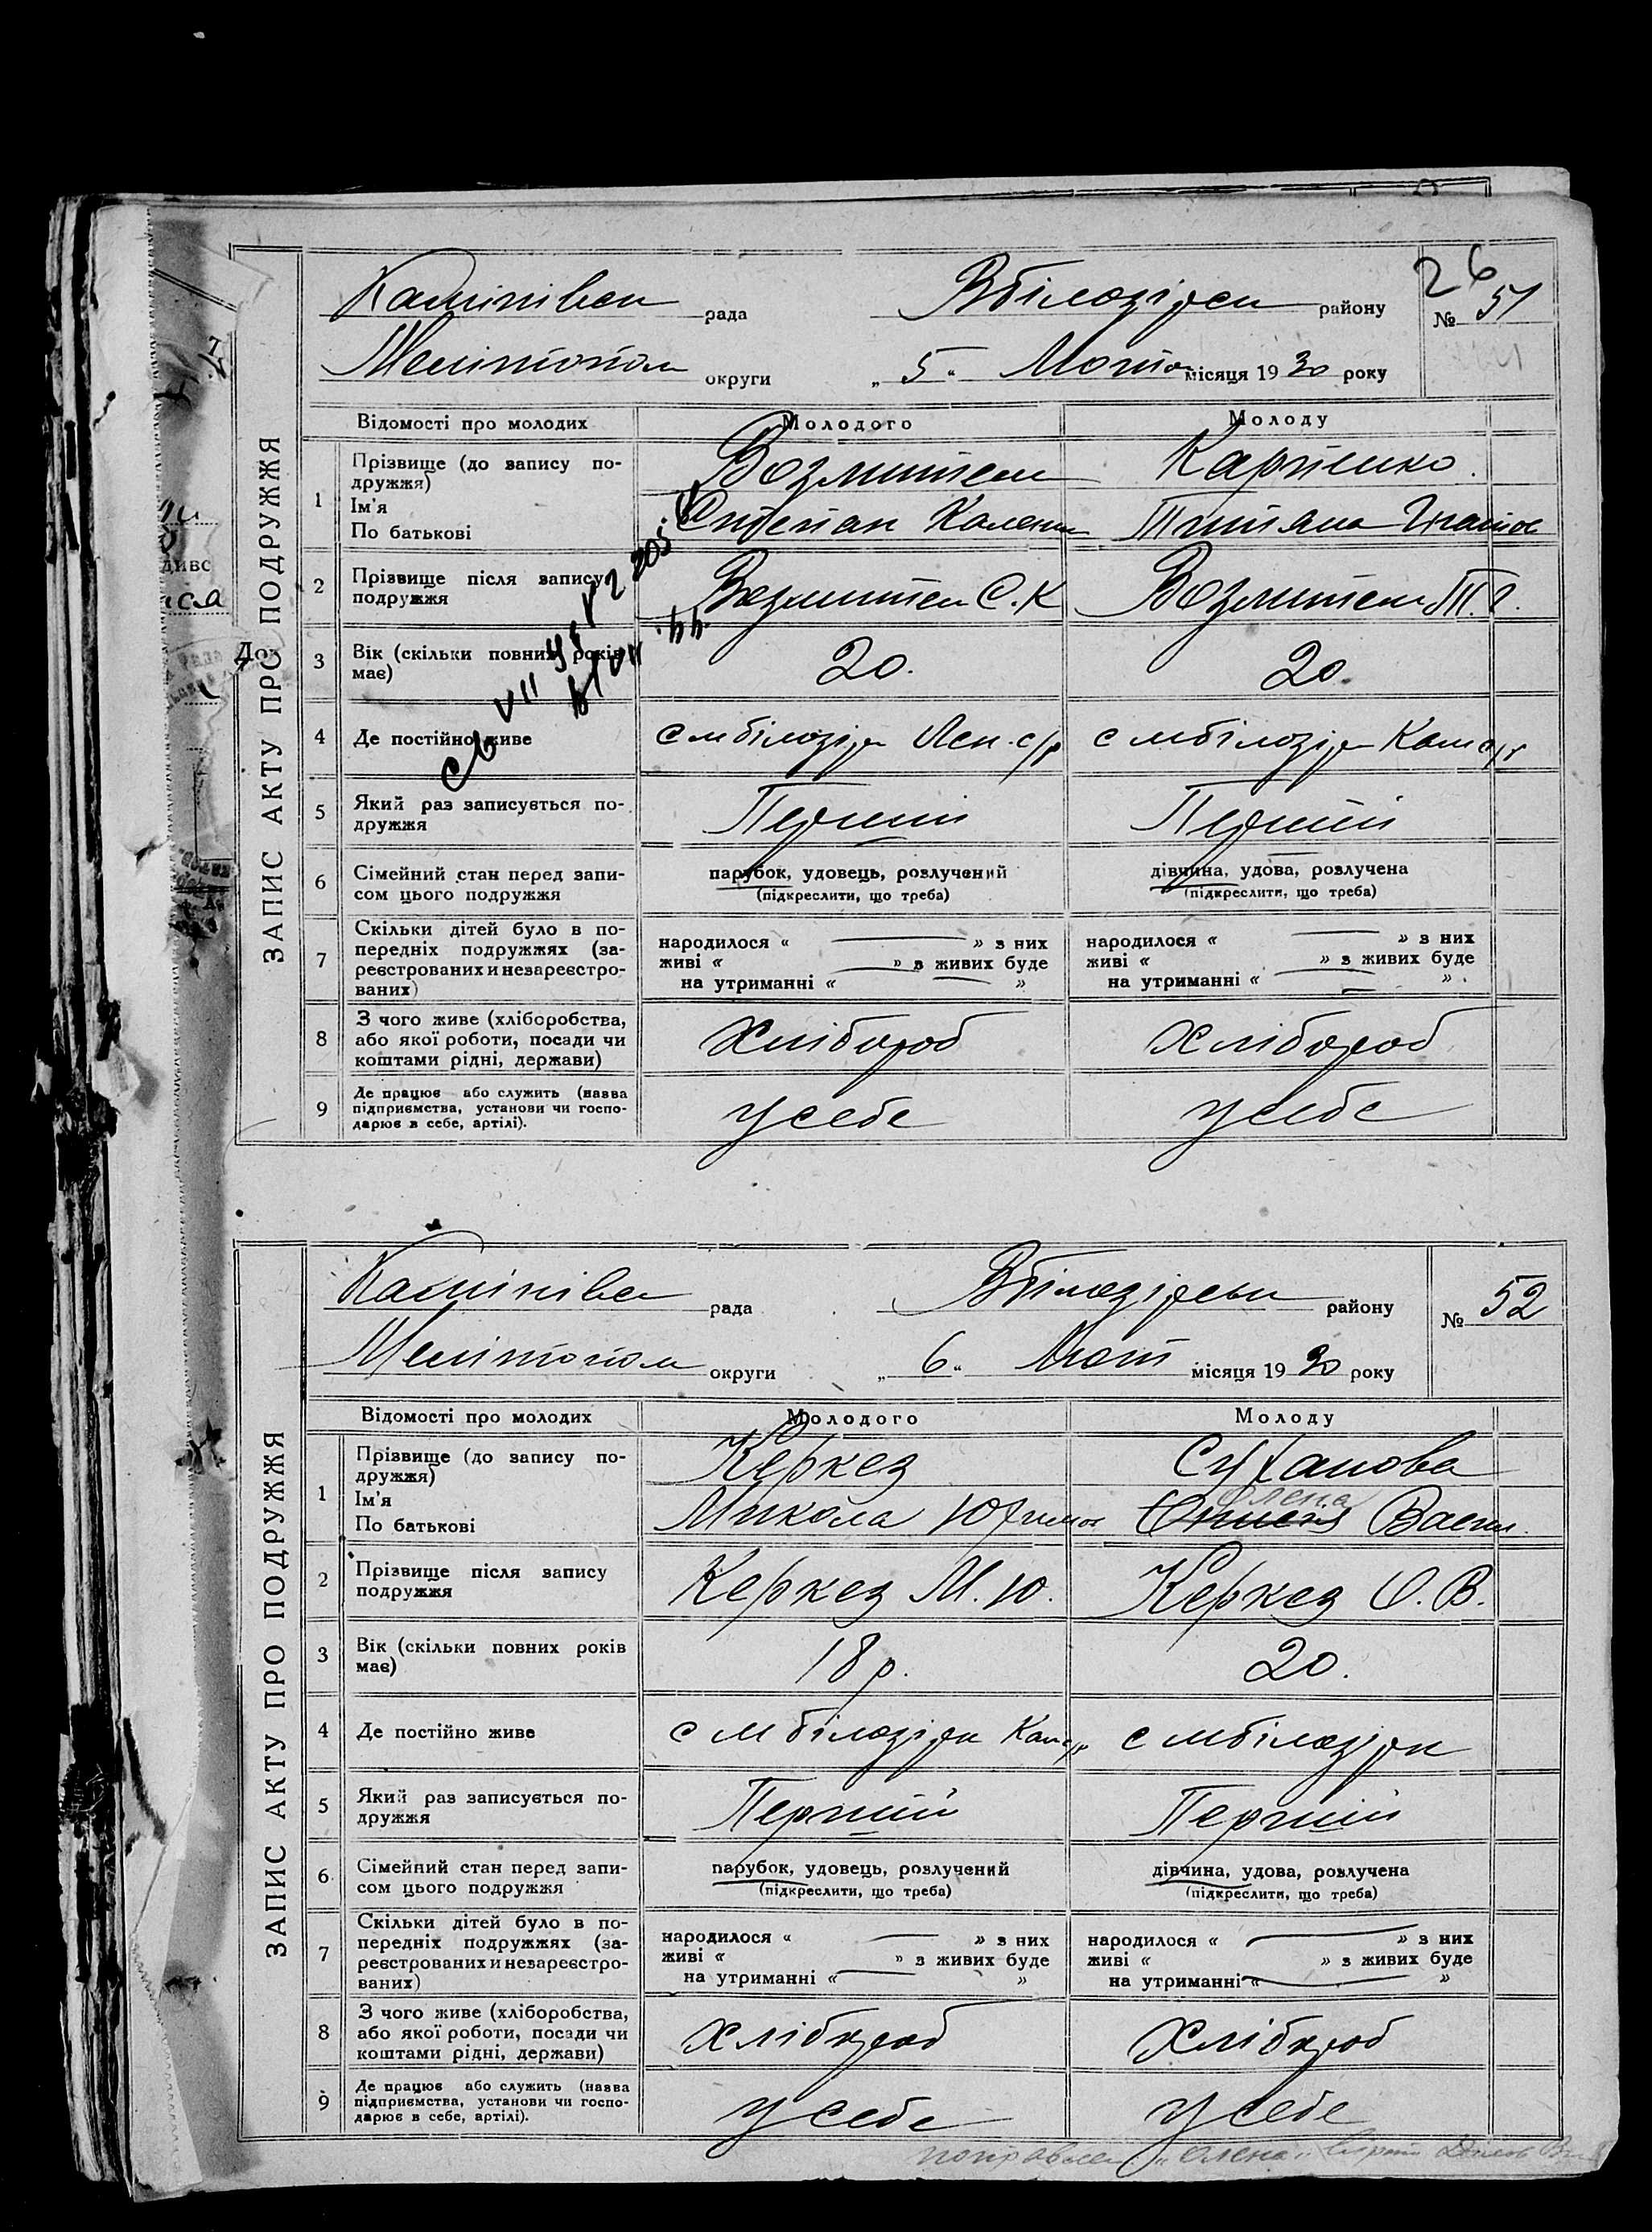 26
рада
району
№ 51
Мелітопол округи
„ 5 “ місяця 1930 року
ЗАПИС АКТУ ПРО ПОДРУЖЖЯ
Відомості про молодих
Молодого
Молоду
1
Прізвище (до запису по-
дружжя)
Карпенко.
Ім'я
По батькові
Степан
2
Прізвище після запису
подружжя
С. К
3
Вік (скільки повних років
має)
20.
20.
4
Де постійно живе
с мбілозірк
с мбілозірк
5
Який раз записується по-
дружжя
Перший
Перший
6
Сімейний стан перед запи-
сом цього подружжя
парубок, удовець, розлучений
(підкреслити, що треба)
дівчина, удова, розлучена
(підкреслити, що треба)
7
Скільки дітей було в по-
передніх подружжях (за-
реєстрованих и незареєстро-
ваних)
народилося « » з них
живі « » з живих буде
на утриманні « »
народилося « » з них
живі « » з живих буде
на утриманні « »
8
З чого живе (хліборобства,
або якої роботи, посади чи
коштами рідні, держави)
Хлібороб
Хлібороб
9
Де працює або служить (назва
підприємства, установи чи госпо-
дарює в себе, артілі).
у себе
у себе
рада
району
№ 52
Мелітопол округи
„ 6 “ Лют місяця 1930 року
ЗАПИС АКТУ ПРО ПОДРУЖЖЯ
Відомості про молодих
Молодого
Молоду
1
Прізвище (до запису по-
дружжя)
Керкез
Суханова
Ім'я
По батькові
Микола Юхимов
Олена
Васил.
2
Прізвище після запису
подружжя
Керкез М. Ю.
Керкез О. В.
3
Вік (скільки повних років
має)
18 р.
20.
4
Де постійно живе
с м білозірк
с мбілозірк
5
Який раз записується по-
дружжя
Перший
Перший
6
Сімейний стан перед запи-
сом цього подружжя
парубок, удовець, розлучений
(підкреслити, що треба)
дівчина, удова, розлучена
(підкреслити, що треба)
7
Скільки дітей було в по-
передніх подружжях (за-
реєстрованих и незареєстро-
ваних)
народилося « » з них
живі « » з живих буде
на утриманні « »
народилося « » з них
живі « » з живих буде
на утриманні « »
8
З чого живе (хліборобства,
або якої роботи, посади чи
коштами рідні, держави)
Хлібороб
Хлібороб
9
Де працює або служить (назва
підприємства, установи чи госпо-
дарює в себе, артілі).
у себе
у себе
„Олена“